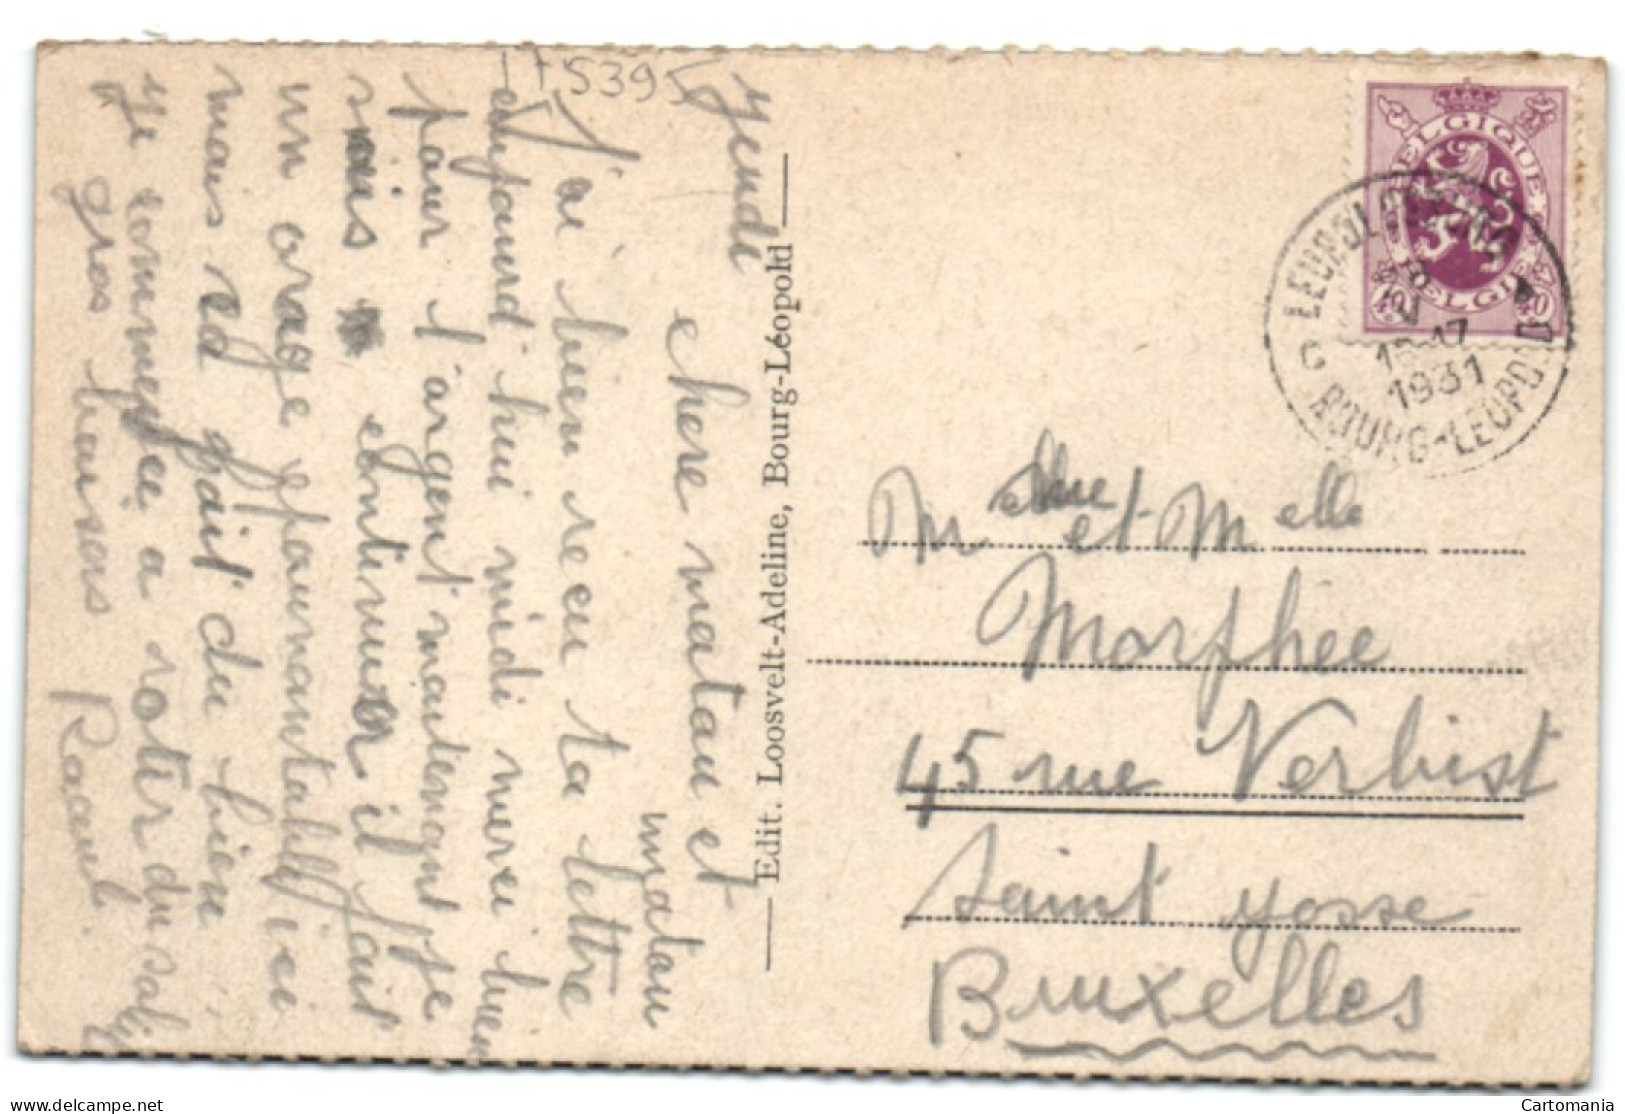 Jeudi
chere matau et
matau
J'ai bien recu ta lettre
aujourd'hui midi merci bien
pour l'argent maintenant je
vais continuer il fait
un orage épouvantable ici
mais sa fait du bien
je commence a rotir du
gros baisers Raoul.
ITS395
Edit. Loosvelt-Adeline, Bourg-Léopold
BELGIQUE
BELGIE
40 40
LEOPOLDSBURG
15-17
1931
C
BOURG-LEOPOLD
Mme et Melle
Morphée
45 rue Verbist
Saint Yosse
Bruxelles
hip-post.com
Cartomania